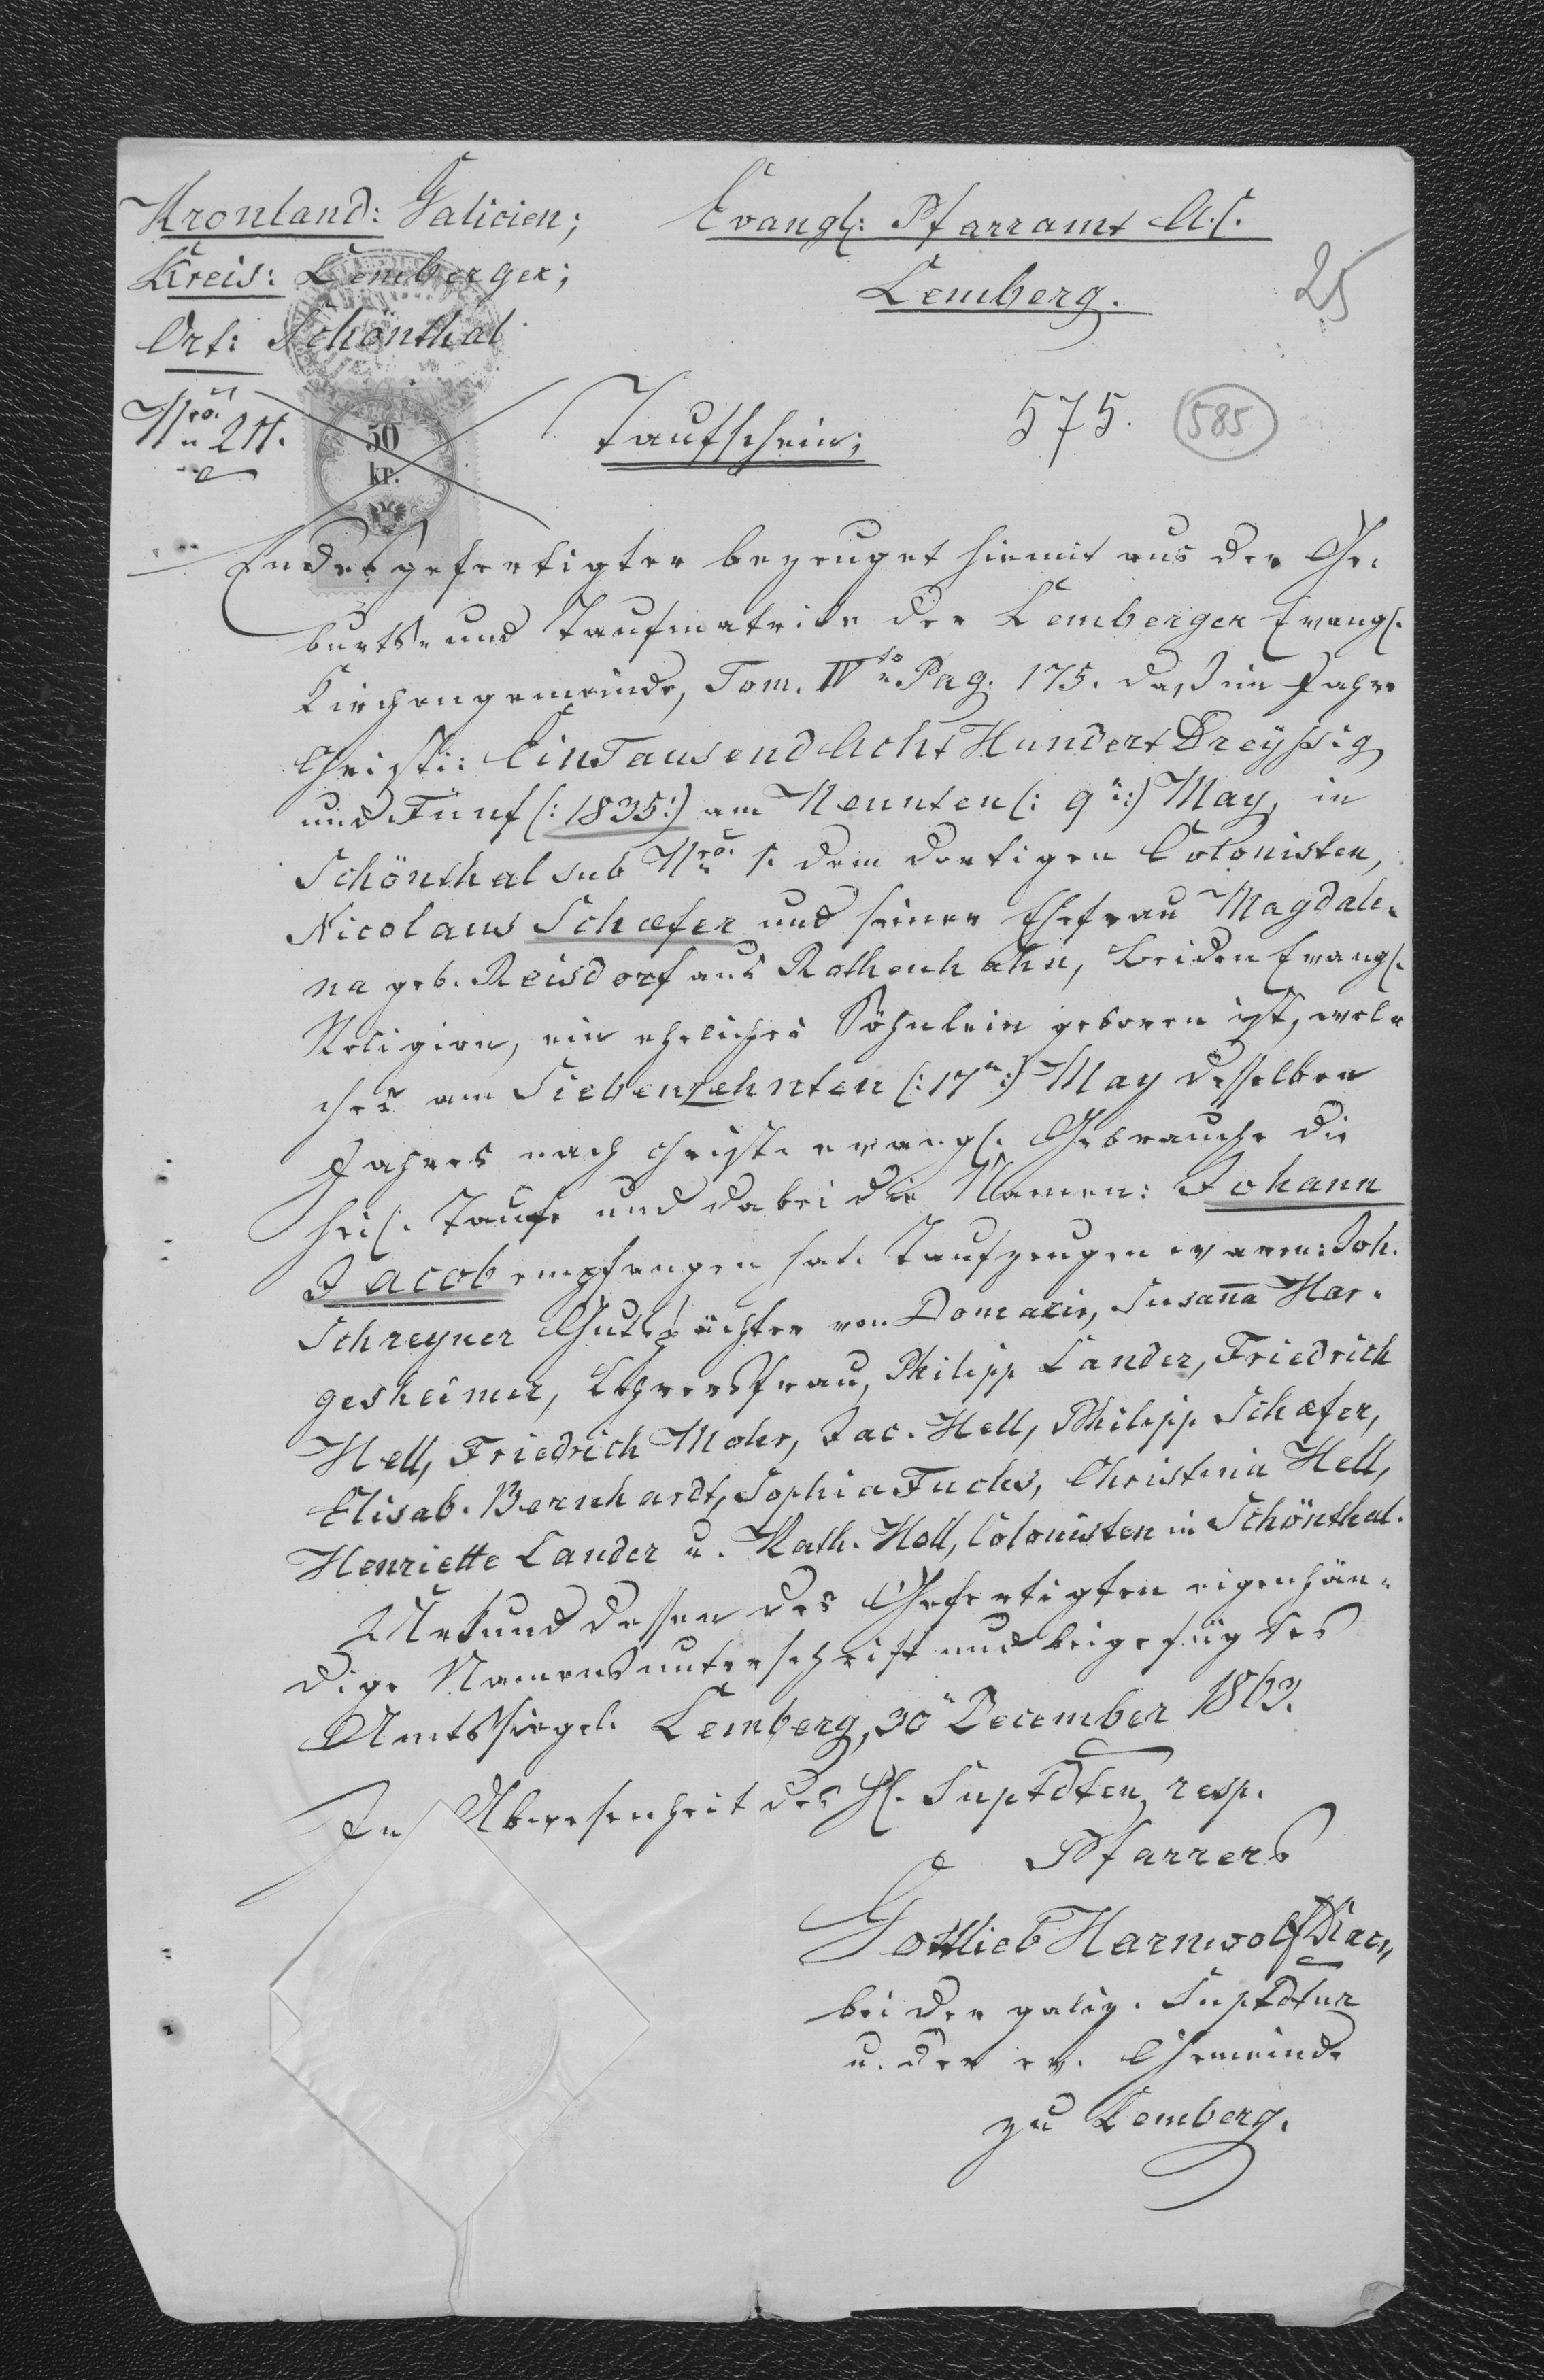 Kronland: Galicien;
Kreis: Lemberger;
Ort: Schönthal
Evangl: Pfarramt A.C.
Lemberg.
25
Nro. 211.
50
kr.
Taufschein;
575.
585
Endesgefertigter bezeuget hiemit aus der Ge-
burts- und Taufmatrike der Lemberger Evangl.
Kirchengemeinde, Tom. IVto Pag. 175. daß im Jahre
Christi: Ein Tausend Acht Hundert Dreyßig
und Fünf (: 1835 :) am Neunten (: 9n :) May, in
Schönthal sub Nro. dem dortigen Colonisten,
Nicolaus Schæfer und seiner Ehefrau Magdale-
na geb. Reisdorf aus Rothenhahn, beiden Evangl.
Religion, ein eheliches Söhnlein geboren ist, wel-
ches am Siebenzehnten (: 17n :) May desselben
Jahres nach christ. evangl. Gebrauche die
heil. Taufe und dabei die Namen: Johann
Jacob empfangen hat. Taufzeugen waren: Joh.
Schreyner Gutspächter von Domazir, Susanna Har-
gesheimer, Lehrersfrau, Philipp Lander, Friedrich
Hell, Friedrich Mohr, Jac. Hell, Philipp Schæfer,
Elisab. Bernhardt, Sophia Fuchs, Christina Hell,
Henriette Lander u. Kath. Holl, Colonisten in Schönthal.
Urkund dessen des Gefertigten eigenhän-
dige Namensunterschrift und beigefügtes
Amtssiegel. Lemberg, 30n December 1863.
In Abwesenheit des H. Suptdten, resp.
Pfarrers
Gottlieb Harnwolf
bei der galiz. Suptdtur
u. der ev. Gemeinde
zu Lemberg.